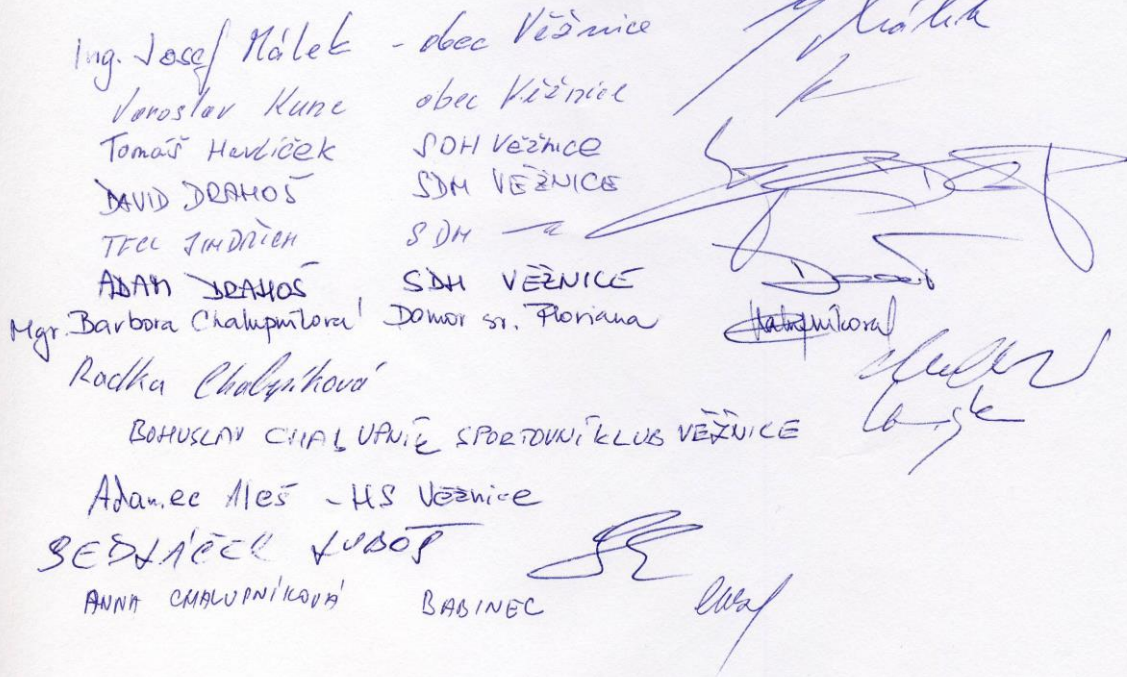 Ing. Josef Málek - obec Věžnice J Málek
Jaroslav Kunc obec Věžnice
Tomáš Havlíček SDH Věžnice
DAVID DRAHOŠ SDH VĚŽNICE
TECL JINDŘICH SDH -"-
ADAM DRAHOŠ SDH VĚŽNICE
Mgr. Barbora Chalupníková Domov sv. Floriana Chalupníková
Radka Chalupníková
BOHUSLAV CHALUPNÍK SPORTOVNÍ KLUB VĚŽNICE
Adamec Aleš - HS Věžnice
SEDLÁČEK LUBOŠ
ANNA CHALUPNÍKOVÁ BABINEC